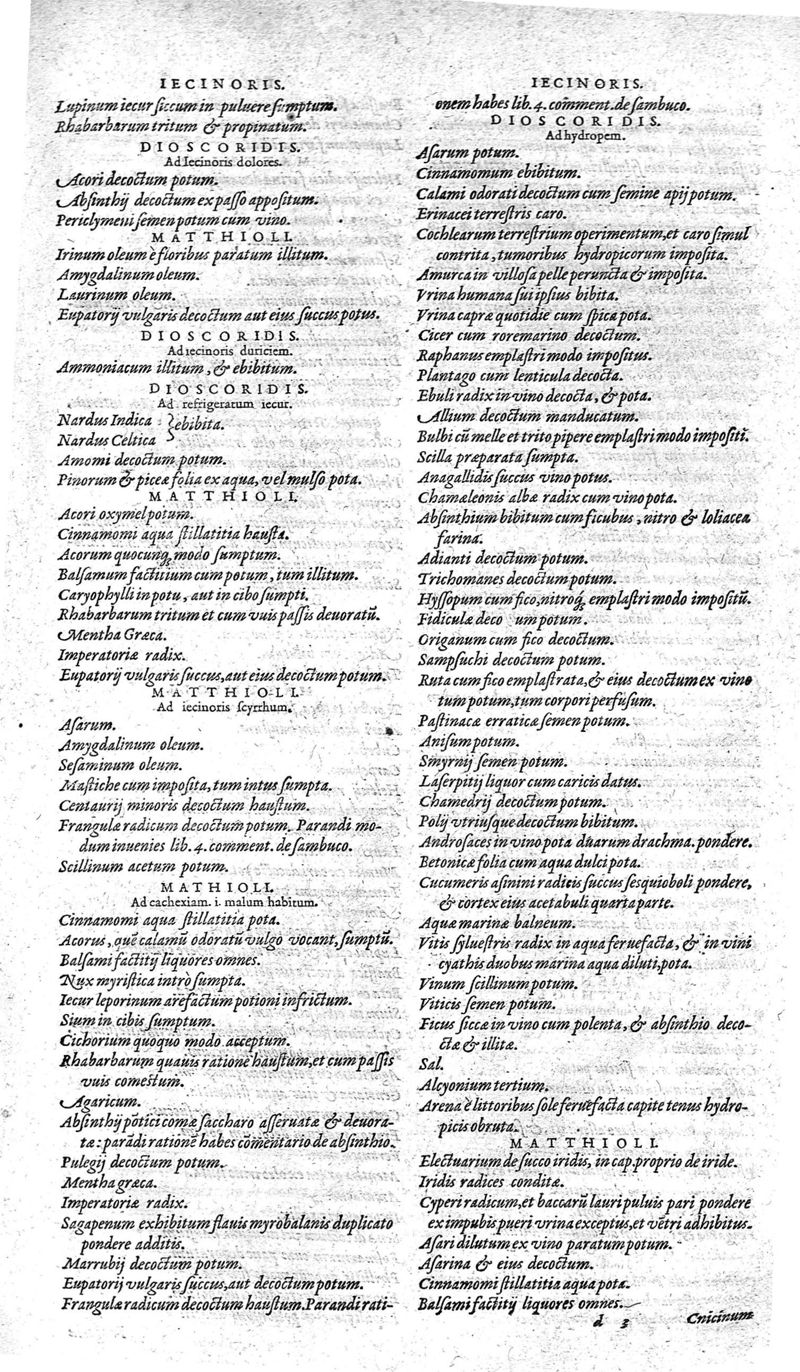 IECINORIS.
Lupinum iecur siccum in puluere sumptum.
Rhabarbarum tritum & propinatum.
DIOSCORIDIS.
Ad Iecinoris dolores.
Acori decoctum potum.
Absinthij decoctum ex passo appositum.
Periclymeni semen potum cum vino.
MATTHIOLI.
Irinum oleum è floribus paratum illitum.
Amygdalinum oleum.
Laurinum oleum.
Eupatorij vulgaris decoctum aut eius succus potus.
DIOSCORIDIS.
Ad iecinoris duriciem.
Ammoniacum illitum, & ebibitum.
DIOSCORIDIS.
Ad refrigeratum iecur.
Nardus Indica } ebibita.
Nardus Celtica
Amomi decoctum potum.
Pinorum & piceæ folia ex aqua, vel mulso pota.
MATTHIOLI.
Acori oxymel potum.
Cinnamomi aqua stillatitia hausta.
Acorum quocunq; modo sumptum.
Balsamum factitium cum potum, tum illitum.
Caryophylli in potu, aut in cibo sumpti.
Rhabarbarum tritum et cum vuis passis deuoratũ.
Mentha Græca.
Imperatoriæ radix.
Eupatorij vulgaris succus, aut eius decoctum potum.
MATTHIOLI.
Ad iecinoris scyrrhum.
Asarum.
Amygdalinum oleum.
Sesaminum oleum.
Mastiche cum imposita, tum intus sumpta.
Centaurij minoris decoctum haustum.
Frangulæ radicum decoctum potum. Parandi mo-
dum inuenies lib. 4. comment. de sambuco.
Scillinum acetum potum.
MATHIOLI.
Ad cachexiam. i. malum habitum.
Cinnamomi aqua stillatitia pota.
Acorus, quẽ calamũ odoratũ vulgo vocant, sumptũ.
Balsami factitij liquores omnes.
Nux myristica intrò sumpta.
Iecur leporinum arefactum potioni infrictum.
Sium in cibis sumptum.
Cichorium quoquo modo acceptum.
Rhabarbarum quauis ratione haustum, et cum passis
vuis comestum.
Agaricum.
Absinthij põtici comæ saccharo asseruatæ & deuora-
tæ: parãdi rationẽ habes cõmentario de absinthio.
Pulegij decoctum potum.
Mentha græca.
Imperatoriæ radix.
Sagapenum exhibitum flauis myrobalanis duplicato
pondere additis.
Marrubij decoctum potum.
Eupatorij vulgaris succus, aut decoctum potum.
Frangulæ radicum decoctum haustum. Parandi rati-
IECINORIS.
onem habes lib. 4. comment. de sambuco.
DIOSCORIDIS.
Ad hydropem.
Asarum potum.
Cinnamomum ebibitum.
Calami odorati decoctum cum semine apij potum.
Erinacei terrestris caro.
Cochlearum terrestrium operimentum, et caro simul
contrita, tumoribus hydropicorum imposita.
Amurca in villosa pelle peruncta & imposita.
Vrina humana sui ipsius bibita.
Vrina capræ quotidie cum spica pota.
Cicer cum roremarino decoctum.
Raphanus emplastri modo impositus.
Plantago cum lenticula decocta.
Ebuli radix in vino decocta, & pota.
Allium decoctum manducatum.
Bulbi cũ melle et trito pipere emplastri modo impositi.
Scilla præparata sumpta.
Anagallidis succus vino potus.
Chamæleonis albæ radix cum vino pota.
Absinthium bibitum cum ficubus, nitro & loliacea
farina.
Adianti decoctum potum.
Trichomanes decoctum potum.
Hyssopum cum fico, nitroq; emplastri modo impositũ.
Fidiculæ deco um potum.
Origanum cum fico decoctum.
Sampsuchi decoctum potum.
Ruta cum fico emplastrata, & eius decoctum ex vino
tum potum, tum corpori perfusum.
Pastinacæ erraticæ semen potum.
Anisum potum.
Smyrnij semen potum.
Laserpitij liquor cum caricis datus.
Chamedrij decoctum potum.
Polij vtriusque decoctum bibitum.
Androsaces in vino pota duarum drachma. pondere.
Betonicæ folia cum aqua dulci pota.
Cucumeris asinini radicis succus sesquioboli pondere,
& cortex eius acetabuli quarta parte.
Aquæ marinæ balneum.
Vitis syluestris radix in aqua feruefacta, & in vini
cyathis duobus marina aqua diluti, pota.
Vinum scillinum potum.
Viticis semen potum.
Ficus siccæ in vino cum polenta, & absinthio deco-
ctæ & illitæ.
Sal.
Alcyonium tertium.
Arena è littoribus sole feruefacta capite tenus hydro-
picis obruta.
MATTHIOLI.
Electuarium de succo iridis, in cap. proprio de iride.
Iridis radices conditæ.
Cyperi radicum, et baccarũ lauri puluis pari pondere
ex impubis pueri vrina exceptus, et vẽtri adhibitus.
Asari dilutum ex vino paratum potum.
Asarina & eius decoctum.
Cinnamomi stillatitia aqua pota.
Balsami factitij liquores omnes.
d 3 Cnicinum